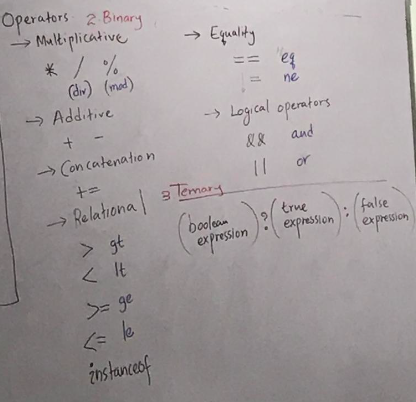 Operators 2. Binary
→ Multiplicative
* / %
(div) (mod)
→ Additive
+ -
→ Concatenation
+=
→ Relational
> gt
< lt
>= ge
<= le
instanceof
→ Equality
== eq
= ne
→ Logical operators
&& and
|| or
3 Ternary
(boolean expression) ? (true expression) : (false expression)